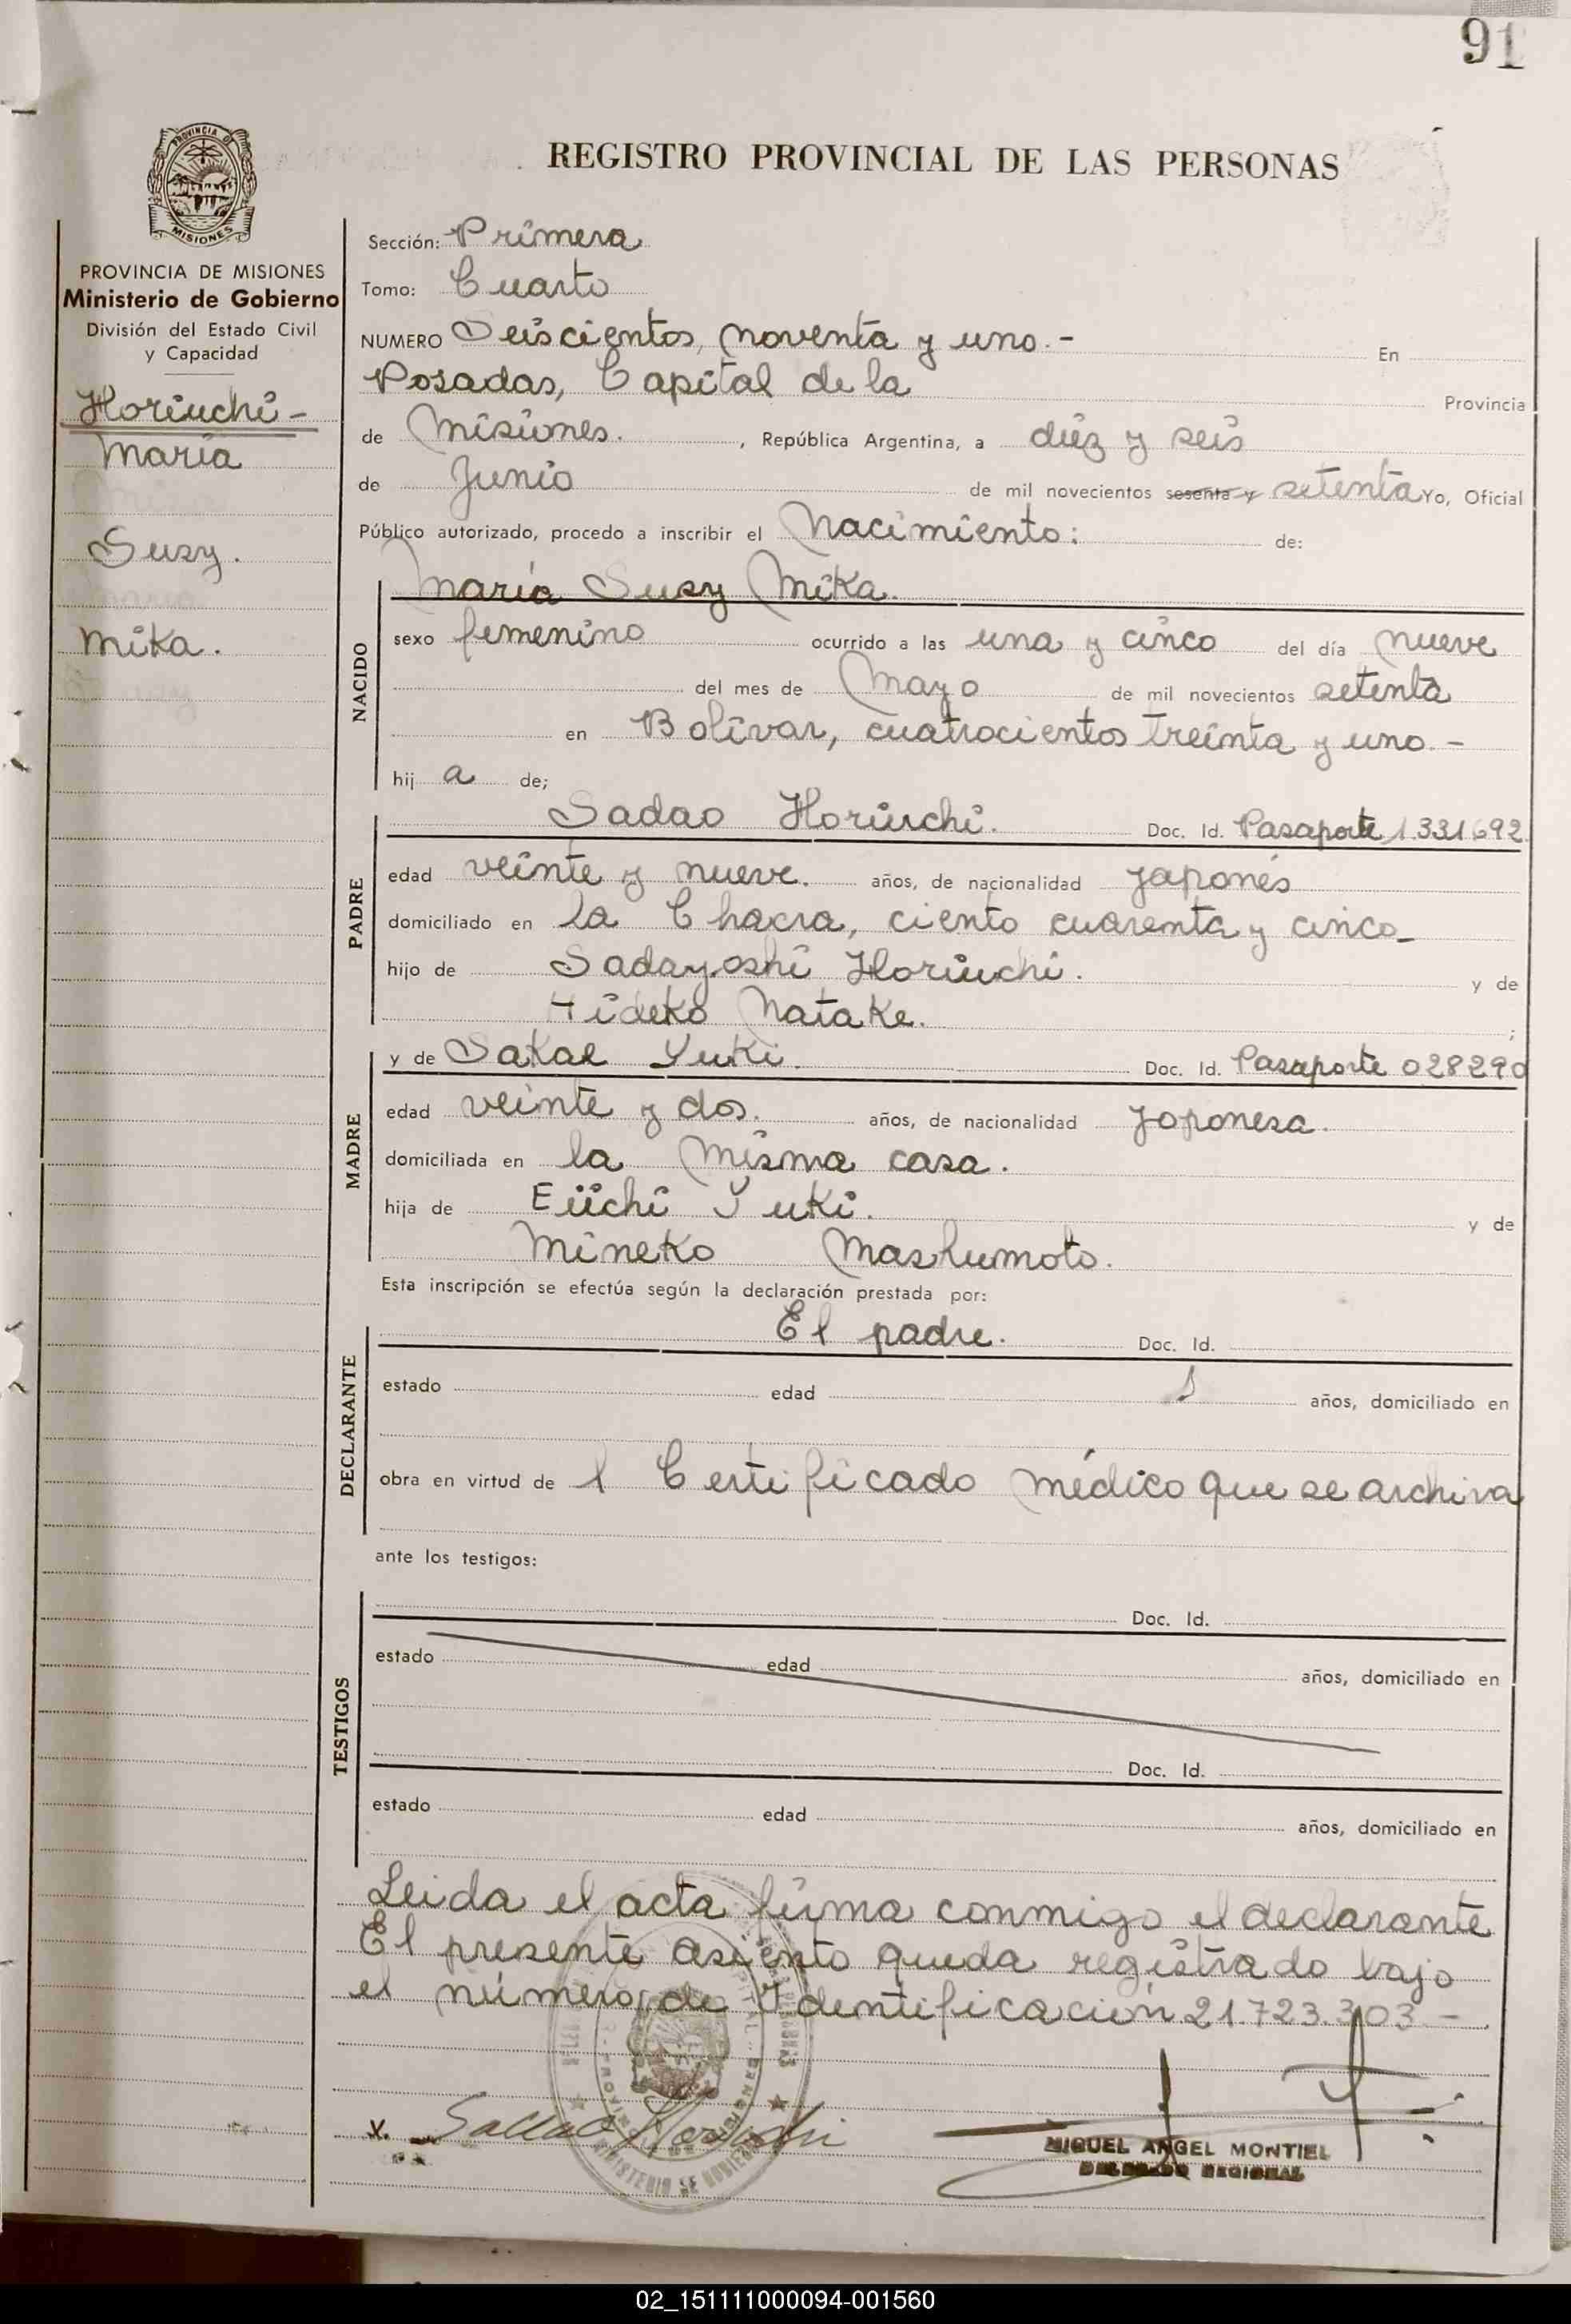 91
REGISTRO PROVINCIAL DE LAS PERSONAS
PROVINCIA DE MISIONES
Ministerio de Gobierno
División del Estado Civil
y Capacidad
Horiuchi -
Maria
Susy.
Mika.
Sección: Primera
Tomo: Cuarto
NUMERO Seiscientos, noventa y uno.- En
Posadas, Capital de la Provincia
de Misiones. , República Argentina, a diez y seis
de Junio de mil novecientos sesenta y setenta Yo, Oficial
Público autorizado, procedo a inscribir el Nacimiento: de:
NACIDO
María Susy Mika.
sexo femenino ocurrido a las una y cinco del día nueve
del mes de Mayo de mil novecientos setenta
en Bolívar, cuatrocientos treinta y uno.-
hij a de;
PADRE
Sadao Horiuchi. Doc. Id. Pasaporte 1.331.692.
edad veinte y nueve. años, de nacionalidad japonés
domiciliado en la Chacra, ciento cuarenta y cinco-
hijo de Sadayoshi Horiuchi. y de
Hideko Natake. ;
MADRE
y de Sakae Yuki. Doc. Id. Pasaporte 028290
edad veinte y dos. años, de nacionalidad japonesa.
domiciliada en la misma casa.
hija de Eiichi Yuki. y de
Mineko Mashumoto.
Esta inscripción se efectúa según la declaración prestada por:
DECLARANTE
El padre. Doc. Id.
estado edad años, domiciliado en
obra en virtud de l Certificado médico que se archiva
ante los testigos:
TESTIGOS
Doc. Id.
estado edad años, domiciliado en
Doc. Id.
estado edad años, domiciliado en
Leida el acta firma conmigo el declarante
El presente asiento queda registrado bajo
el número de Identificación 21.723.303.-
x. Sadao Horiuchi
MIGUEL ANGEL MONTIEL
DELEGADO REGIONAL
02_151111000094-001560